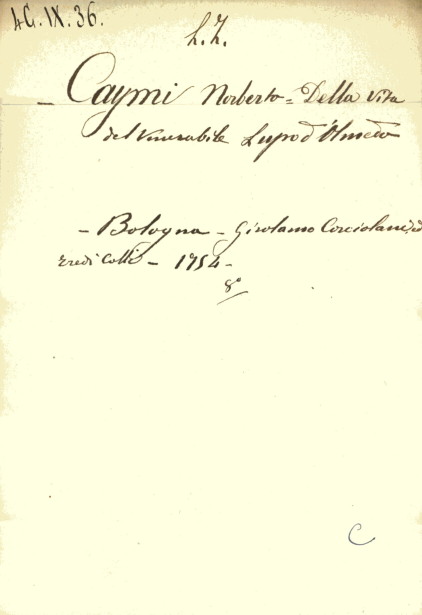 4G.IX.36.
h.z.
- Caymi Norberto = Della vita
del Venerabile Lupo d'Olmedo
- Bologna - Girolamo Corciolani, ed
Eredi Colli - 1754 -
8°
C